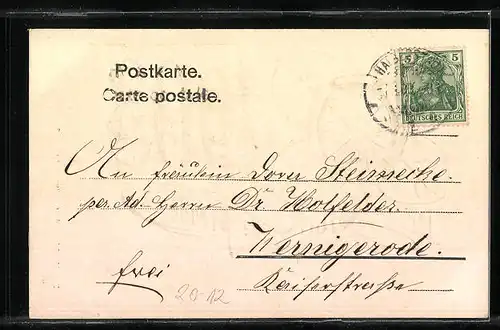 Postkarte.
Carte postale.
5 5
DEUTSCHES REICH
An Fräulein Dora Steimecke.
per. Ad. Herrn Dr Holfelder.
Wernigerode.
frei
Kaiserstrasse
20-12